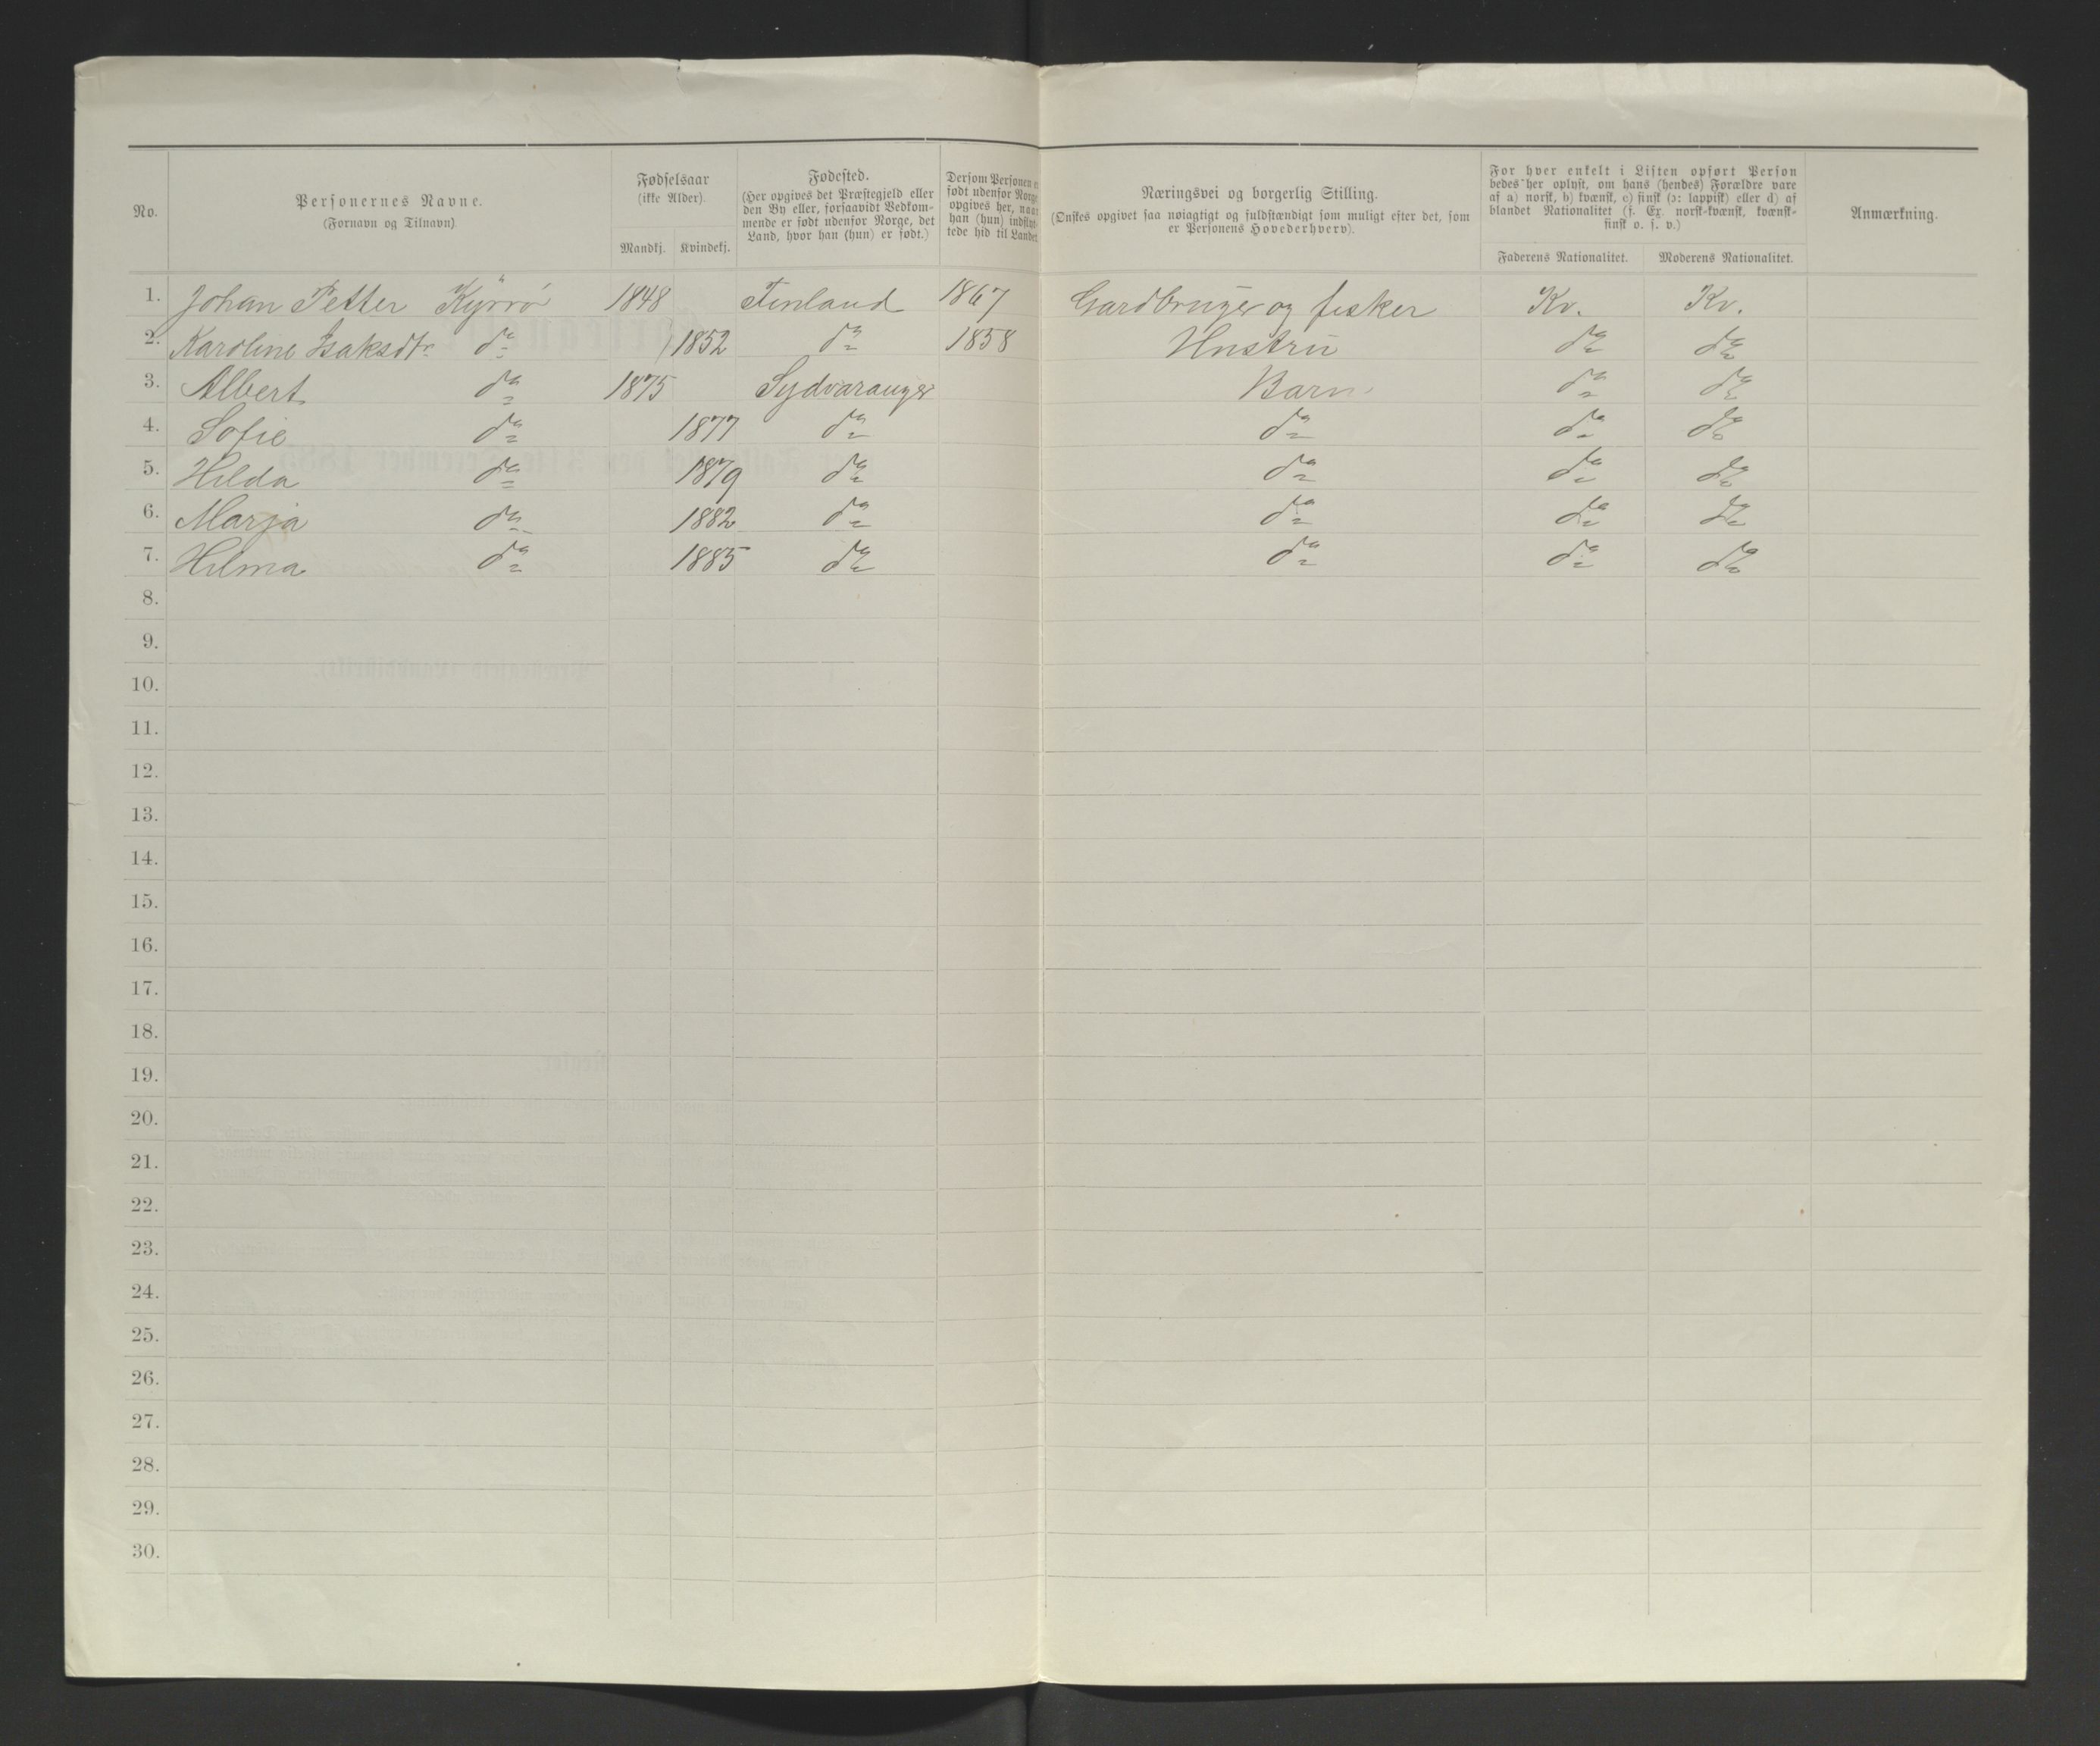 No.
Personernes Navne.
(Fornavn og Tilnavn)
Fødselsaar
(ikke Alder).
Mandkj. Kvindekj.
Fødested.
(Her opgives det Præstegjeld eller
den By eller, forsaavidt Vedkom-
mende er født udenfor Norge, det
Land, hvor han (hun) er født.)
Dersom Personen
født udenfor Norge
opgives her,
han (hun) indflyt-
tede hid til Landet
Næringsvei og borgerlig Stilling.
(Ønskes opgivet saa nøiagtigt og fuldstændigt som muligt efter det, som
er Personens Hovederhverv).
For hver enkelt i Listen opført Person
bedes her oplyst, om hans (hendes) Forældre vare
af a) norsk, b) kvænsk, c) finsk (ɔ: lappisk) eller d) af
blandet Nationalitet (f. Ex. norsk-kvænsk, kvænsk-
finsk o. s. v.)
Faderens Nationalitet. Moderens Nationalitet.
Anmærkning.
1. Johan Petter Kyrrö 1848 Finland 1867 Gardbruger og fisker Kv. Kv.
2. Karoline Isaksdtr do 1852 do 1858 Hustru do do
3. Albert do 1875 Sydvaranger Barn do do
4. Sofie do 1877 do do do do
5. Hilda do 1879 do do do do
6. Marja do 1882 do do do do
7. Hilma do 1885 do do do do
8.
9.
10.
11.
12.
13.
14.
15.
16.
17.
18.
19.
20.
21.
22.
23.
24.
25.
26.
27.
28.
29.
30.